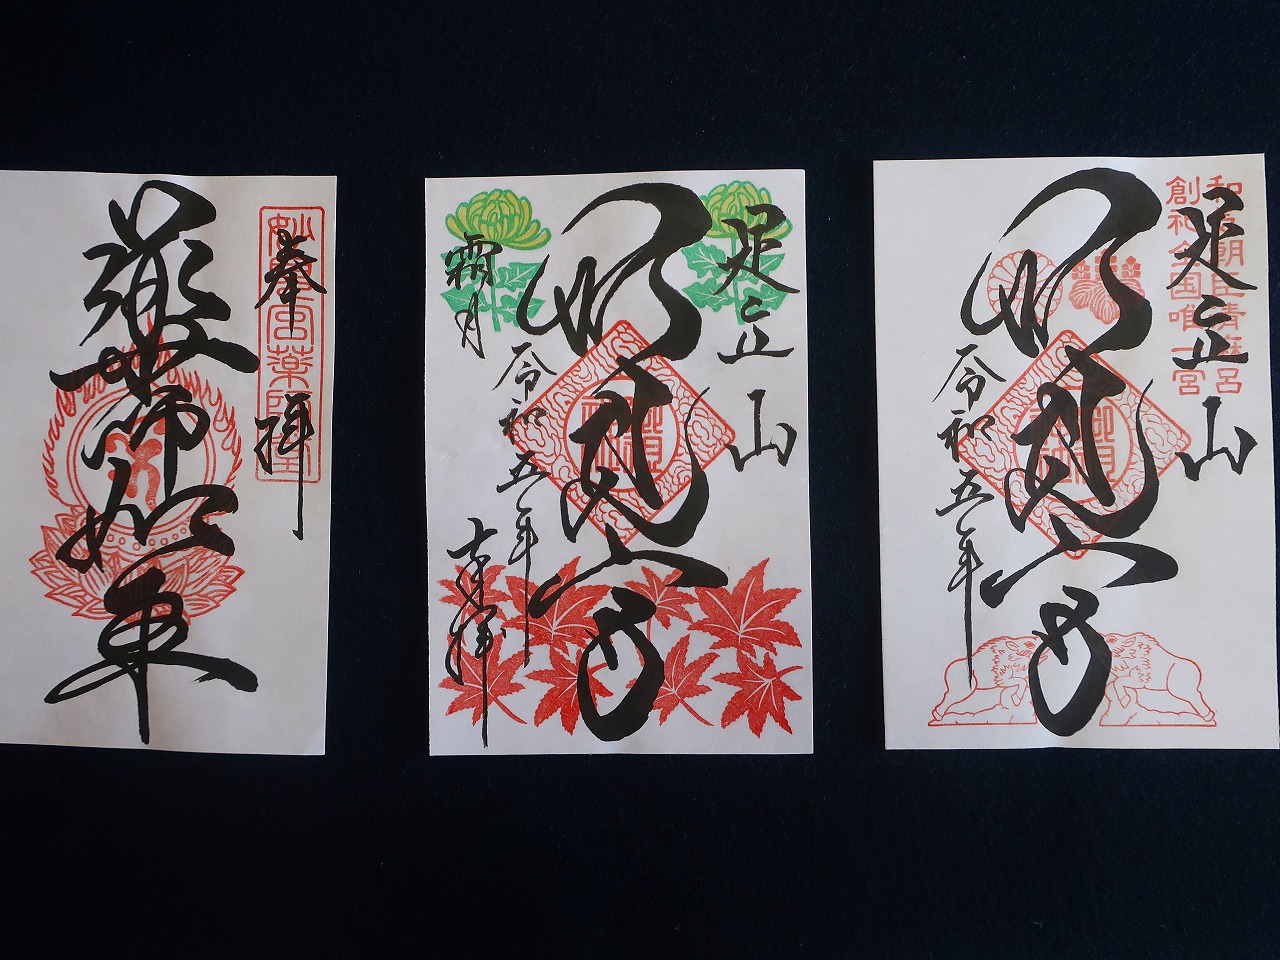 奉拝
妙見宮薬師堂
薬師如来
足立山
妙見宮
令和五年
霜月
奉拝
足立山
和気朝臣清麻呂
創祀全国唯一宮
妙見宮
令和五年